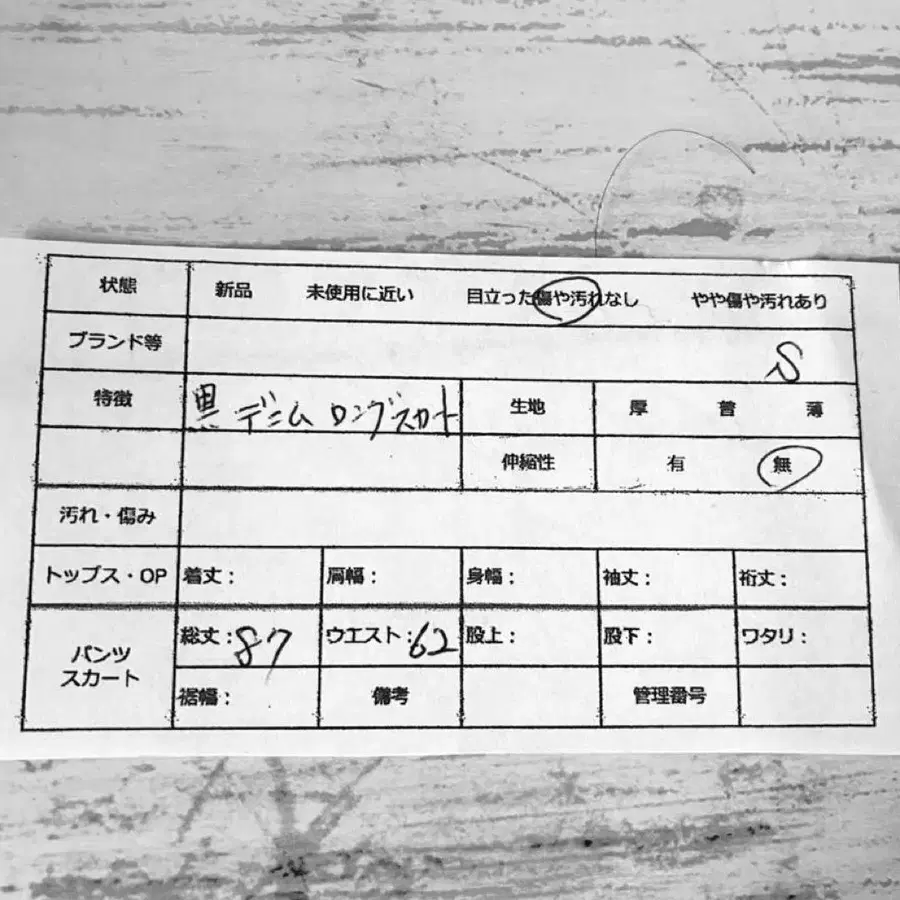 状態 新品 未使用に近い 目立った傷や汚れなし やや傷や汚れあり
ブランド等 S
特徴 黒 デニム ロングスカート 生地 厚 普 薄
伸縮性 有 無
汚れ・傷み
トップス・OP 着丈: 肩幅: 身幅: 袖丈: 裄丈:
パンツ スカート 総丈:87 ウエスト:62 股上: 股下: ワタリ:
裾幅: 備考 管理番号